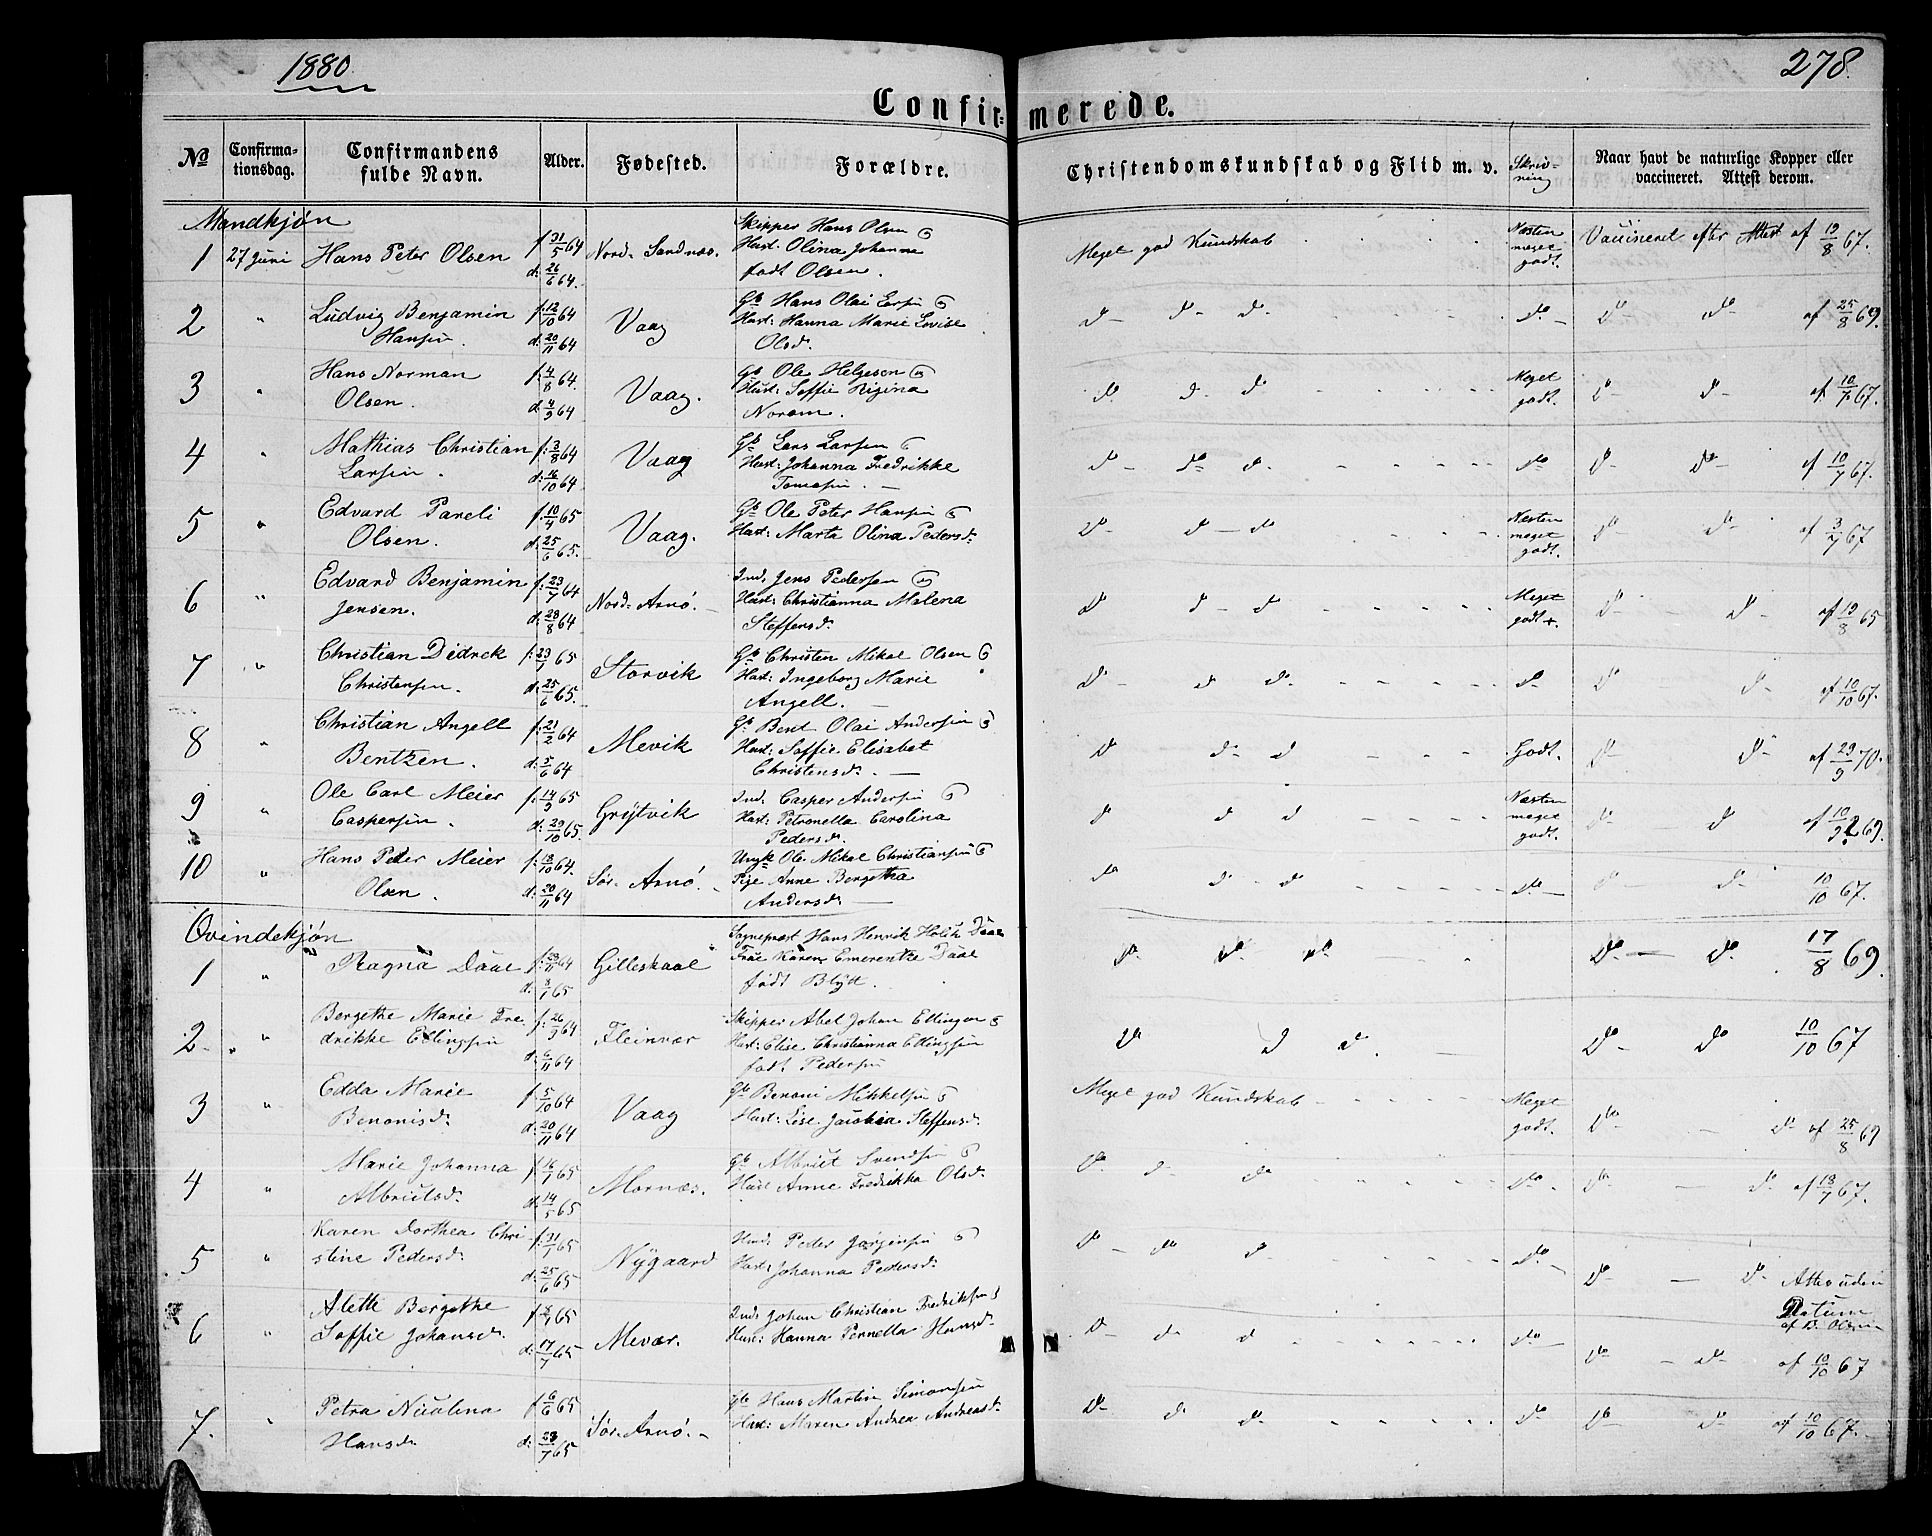 1880
278.
Confirmerede.
No Confirmationsdag. Confirmandens fulde Navn. Alder. Fødested. Forældre. Christendomskundskab og Flid m. v. Skrivning Naar havt de naturlige Kopper eller vaccineret. Attest derom.
Mandkjøn
1 27 Juni Hans Peter Olsen f. 31/5 64 d. 26/6 64. Nord-Sandnæs. Skipper Hans Olsen Hust: Olina Johanna født Olsen. Meget god Kundskab Næsten meget godt. Vaccineret efter Attest af 19/8 67.
2 " Ludvig Benjamin Hansen. f. 12/10 64 d. 20/11 64 Vaag Gb Hans Olai Hust: Hanna Marie Lovise Olsd. do - do - do. do - do do af 25/8 69.
3 " Hans Norman Olsen. f. 4/8 64. d. 4/9 64 Vaag. Gb Ole Helgesen Hust: Soffie Regina Norom. do. do - do Meget godt. do - do - af 10/7 67.
4 " Mathias Christian Larsen. f. 3/8 64 d. 16/10 64 Vaag Gb Lars Larsen Hust: Johanna Fredrikke Tomasen. do - do - do. do do - do - af 10/7 67.
5 " Edvard Pareli Olsen. f. 10/4 65 d. 25/6 65. Vaag. Gb Ole Peter Hansen Hust: Marta Olina Pedersd. do - do - do Næsten meget godt. do - do - af 3/7 67
6 " Edvard Benjamin Jensen. f. 23/7 64 d. 28/8 64 Nord-Arnø. Ind. Jens Pedersen Hust: Christianna Malena Steffensd. do do - do Meget godt +. do - do - af 19/8 65
7 " Christian Didrek Christensen. f. 23/1 65 d. 25/6 65. Storvik Gb Christen Mikal Olsen Hust: Ingeborg Marie Angell. do - do do. do - do do. af 10/10 67.
8 " Christian Angell Bentzen. f. 21/2 64 d. 5/6 64 Mevik Gb Bent Olai Andersen Hust: Soffie Elisabet Christensd. do do - do Godt. do - do - af 29/9 70.
9 " Ole Carl Meier Caspersen. f. 14/9 65 d. 29/10 65. Grytvik Ind. Casper Andersen Hust: Petronella Carolina Pedersd. do do do Næsten meget godt. do - do af 10/9 69.
10 " Hans Peder Meier Olsen. f. 18/10 64. d. 20/11 64 Sør-Arnø. Ungk Ole Mikal Christiansen Pige Anne Bergetha Andersd. do do - do do - do - do. 10/10 67.
Qvindekjøn
1 " Ragna Daae f. 23/11 64 d. 8/1 65 Gilleskaal Sognepræst Hans Henrik Daae Frue Karen Emerentze Daae født Blytt. do. do. do. do - do. 17/8 69.
2 - " Bergethe Marie Fredrikke Ellingsen f. 26/9 64 d. 6/11 64 Fleinvær Skipper Abel Johan Ellingsen Hust: Elise Christianna Ellingsen født Pedersen do do do. do - do 10/10 67
3 " Edda Marie Benonisd. f. 5/10 64 d. 20/11 64 Vaag Gb Benoni Mikkelsen Hust: Lise Jacobia Steffensd. Meget god Kundskab Meget godt. do - do af 25/8 69
4 " Marie Johanna Albrictsd. f. 16/1 65 d. 14/5 65 Mornæs. Gb Albrict Svendsen Hust Anne Fredrikka Olsd. do. do - do do. do - do. af 18/7 67.
5 " Karen Dorthea Christine Pedersd. f. 31/1 65 d. 25/6 65 Nygaard Peder Jørgensen Hust: Johanna Pedersd. do - do do do. do - do. Attest uden Datum af B. Olsen
6 " Alette Bergethe Soffie Johansd. 65 d. 17/7 65 Mevær. Ind. Johan Christian Fredriksen Hust: Hanna Pernella Hansd. do - do - do do - do - do - af 10/10 67
7. " Petra Nicolina Hansd. f. 6/6 65 d. 23/7 65 Sør-Arnø. Gb Hans Martin Simonsen Hust: Maren Andrea Andreasd. do - do do - do do - do af 10/10 67.